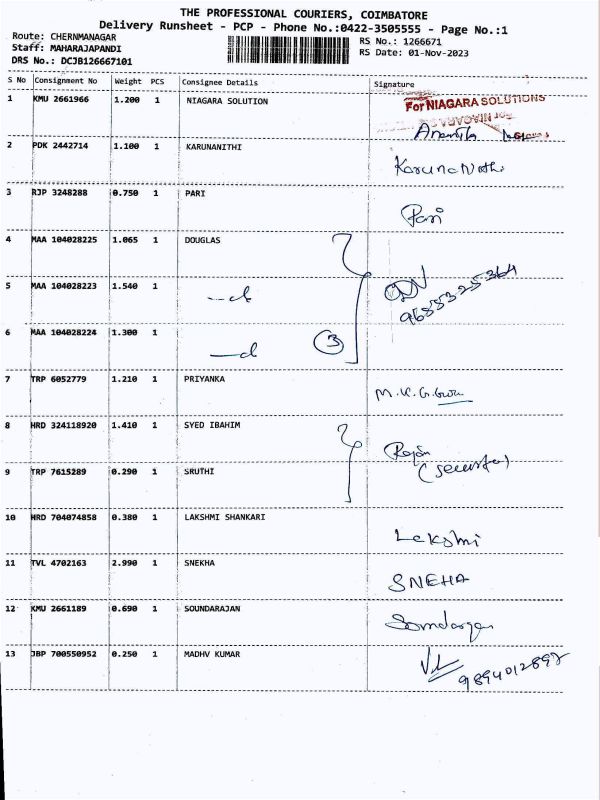 THE PROFESSIONAL COURIERS, COIMBATORE
Delivery Runsheet - PCP - Phone No.:0422-3505555 - Page No.:1
Route: CHERNMANAGAR
Staff: MAHARAJAPANDI
DRS No.: DCJB126667101
RS No.: 1266671
RS Date: 01-Nov-2023
S No Consignment No Weight PCS Consignee Details Signature
1 KMU 2661966 1.200 1 NIAGARA SOLUTION
For NIAGARA SOLUTIONS
2 PDK 2442714 1.100 1 KARUNANITHI
3 RJP 3248288 0.750 1 PARI Pari
4 MAA 104028225 1.065 1 DOUGLAS
5 MAA 104028223 1.540 1
9685325364
6 MAA 104028224 1.300 1 3
7 TRP 6052779 1.210 1 PRIYANKA
8 HRD 324118920 1.410 1 SYED IBAHIM
9 TRP 7615289 0.290 1 SRUTHI
10 HRD 704074858 0.380 1 LAKSHMI SHANKARI Lekshmi
11 TVL 4702163 2.990 1 SNEKHA SNEHA
12 KMU 2661189 0.690 1 SOUNDARAJAN
13 JBP 700550952 0.250 1 MADHV KUMAR
9894012892